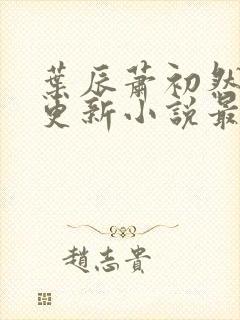 葉辰蕭初然
更新小說最
趙志貴